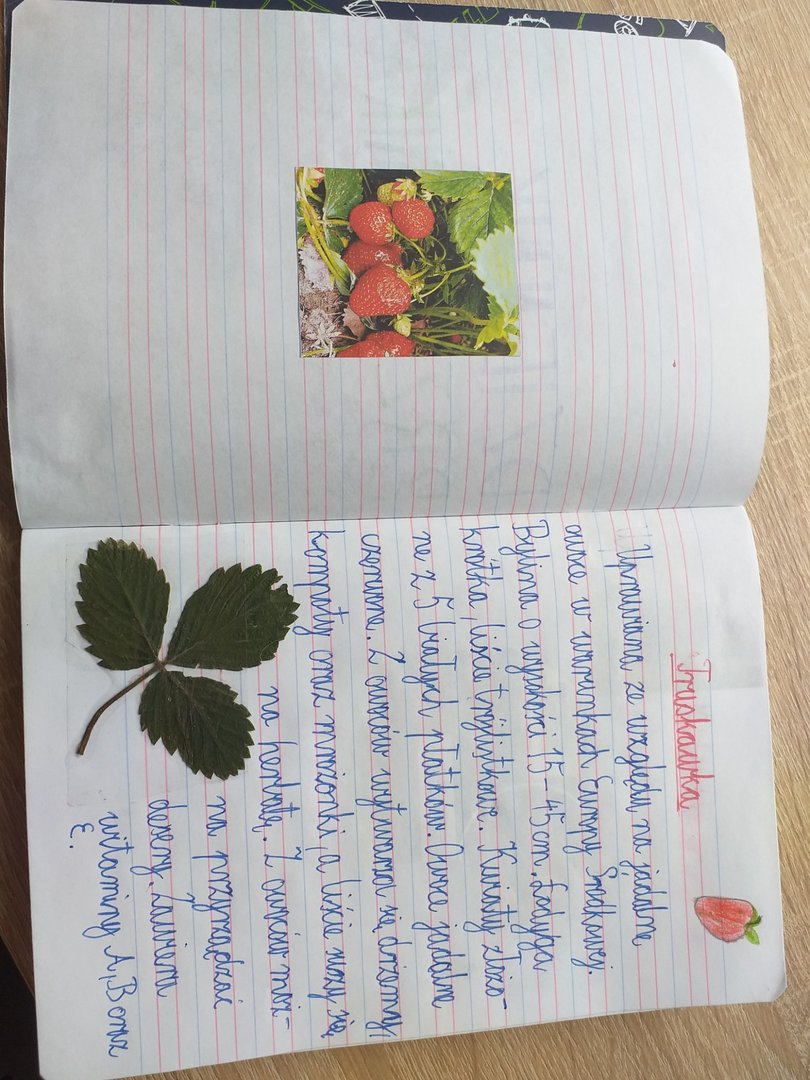 Truskawka
Uprawiana ze względu na jadalne
owoce w warunkach Europy Środkowej.
Bylina o wysokości 15-45cm. Łodyga
krótka, liście trójlistkowe. Kwiaty złożo-
ne z 5 białych płatków. Owoce jadalne
czerwone. Z owoców wytwarza się dżemy,
kompoty oraz mrożonki, a liście suszy się
na herbatę. Z owoców moż-
na przyrządzać
desery. Zawiera
witaminy A, B oraz
E.